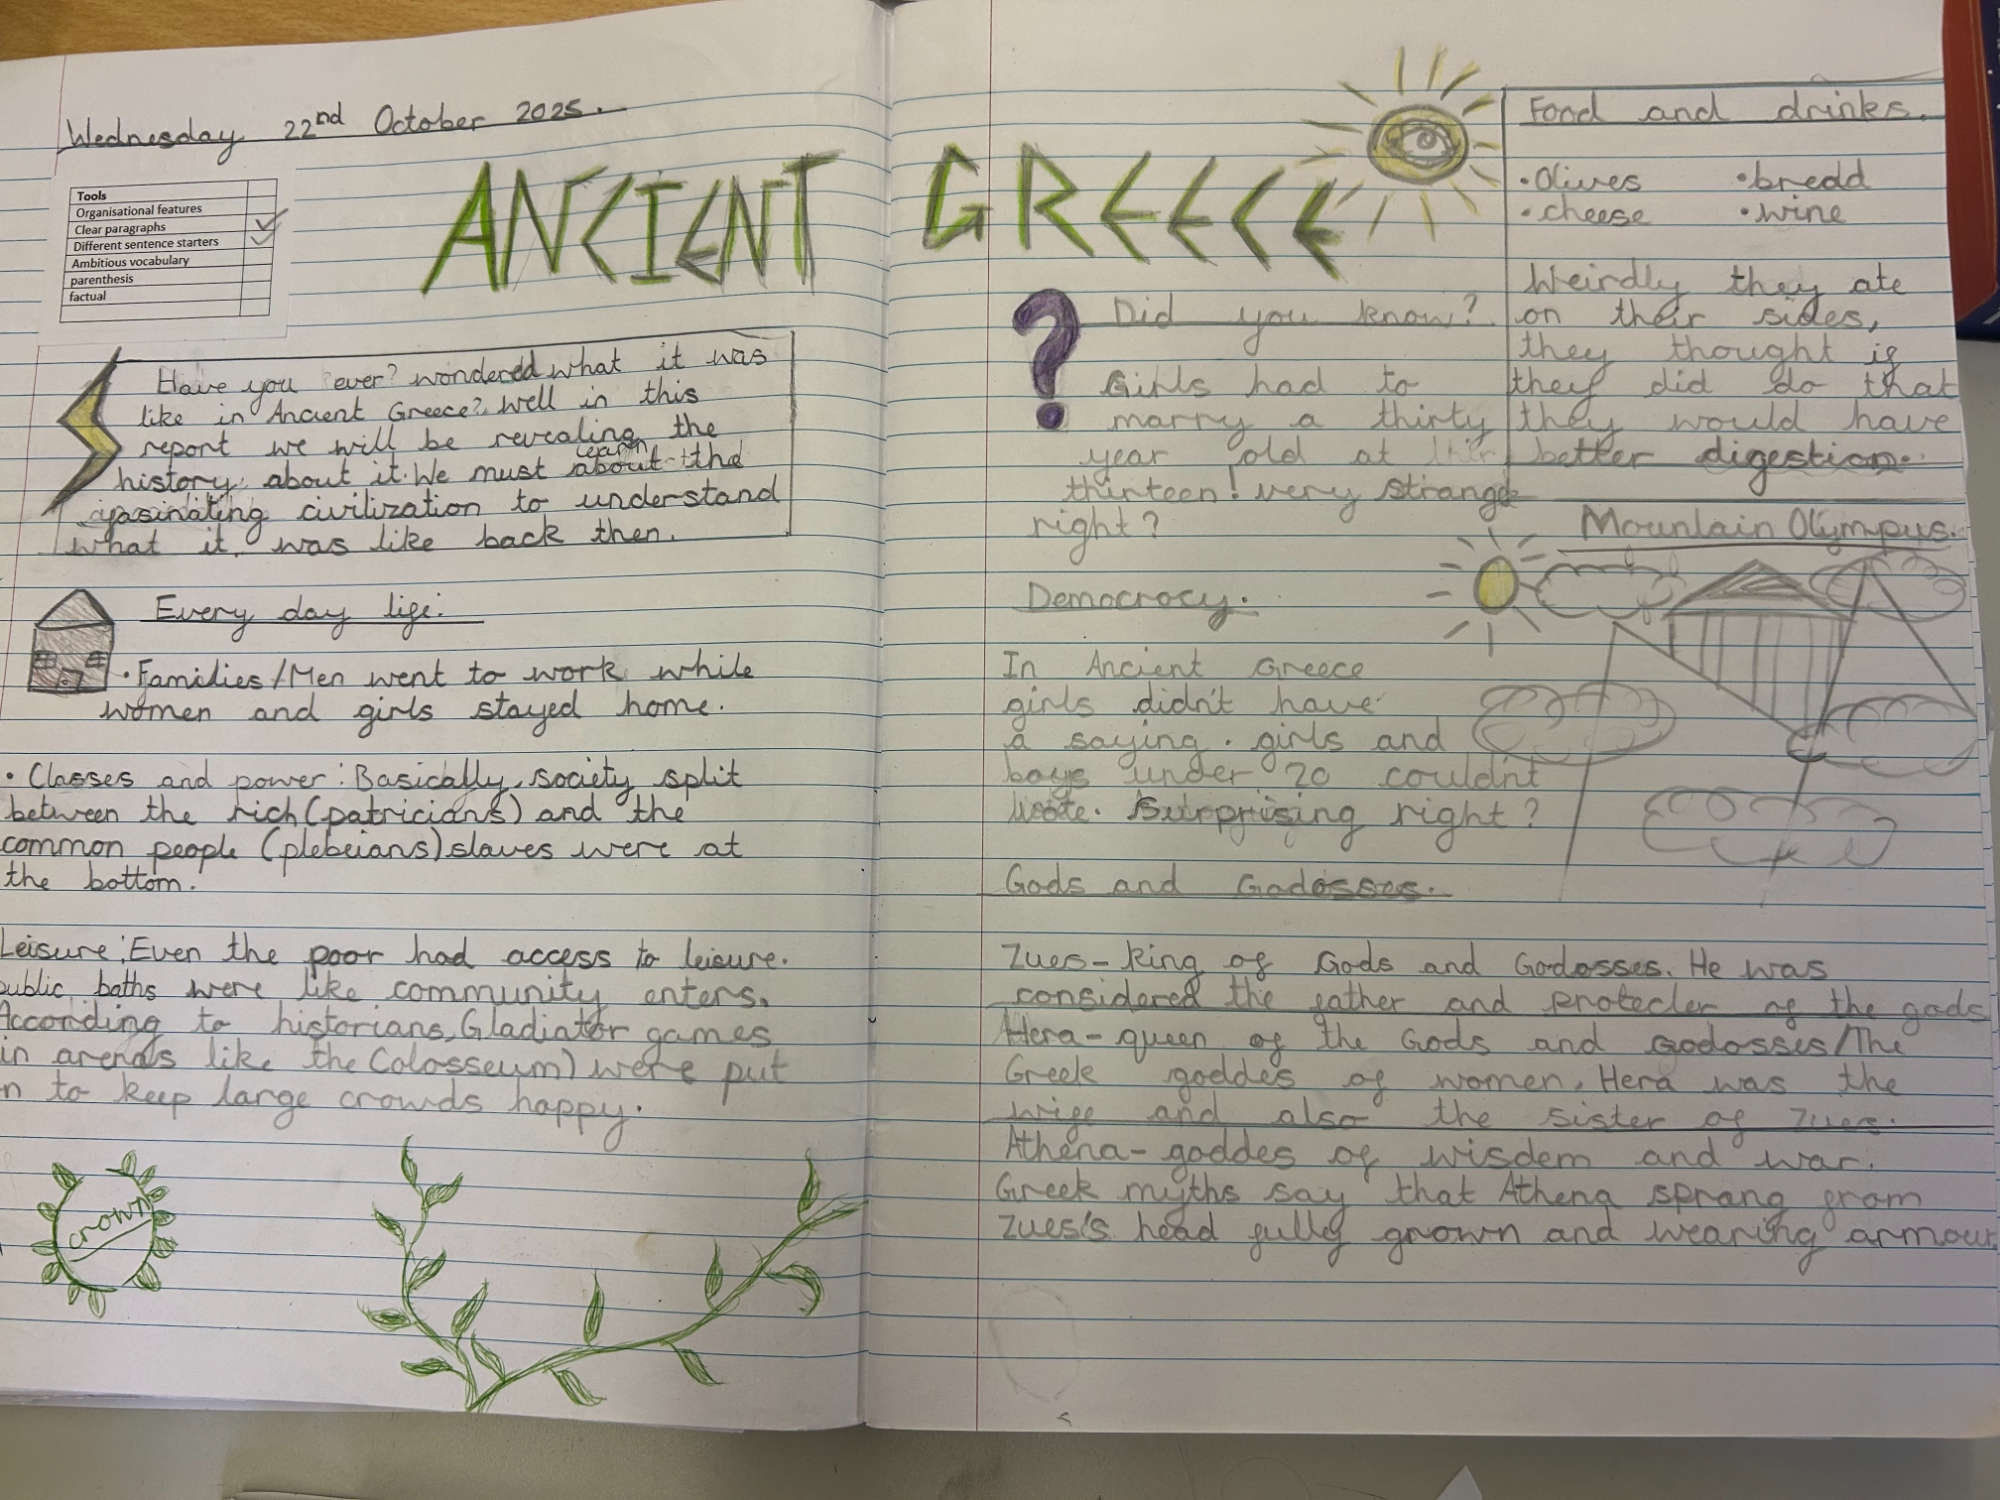 Wednesday 22nd October 2025.
Tools
Organisational features
Clear paragraphs
Different sentence starters
Ambitious vocabulary
parenthesis
factual
ANCIENT GREECE
Have you ever? wondered what it was
like in Ancient Greece? Well in this
report we will be revealing the
history about it. We must learn about the
fasinating civilization to understand
what it was like back then.
Every day life:
• Families/Men went to work while
women and girls stayed home.
• Classes and power: Basically, society split
between the rich (patricians) and the
common people (plebeians) slaves were at
the bottom.
Leisure: Even the poor had access to leisure.
public baths were like community enters.
According to historians, Gladiator games
in arenas like the Colosseum) were put
n to keep large crowds happy.
crown
Did you know?
Girls had to
marry a thirty
year old at
thirteen! very strange
right?
Democrocy.
In Ancient Greece
girls didn't have
a saying. girls and
boys under 20 couldn't
vote. Surprising right?
Gods and Godosses.
Zues- King of Gods and Godosses. He was
considered the father and protecter of the gods
Hera- queen of the Gods and Godosses/The
Greek goddes of women. Hera was the
wife and also the sister of Zues.
Athena- goddes of wisdem and war.
Greek myths say that Athena sprang from
Zues's head fully grown and wearing armour
Food and drinks.
• Olives • bredd
• cheese • wine
Weirdly they ate
on their sides,
they thought if
they did do that
they would have
better digestion.
Mountain Olympus.